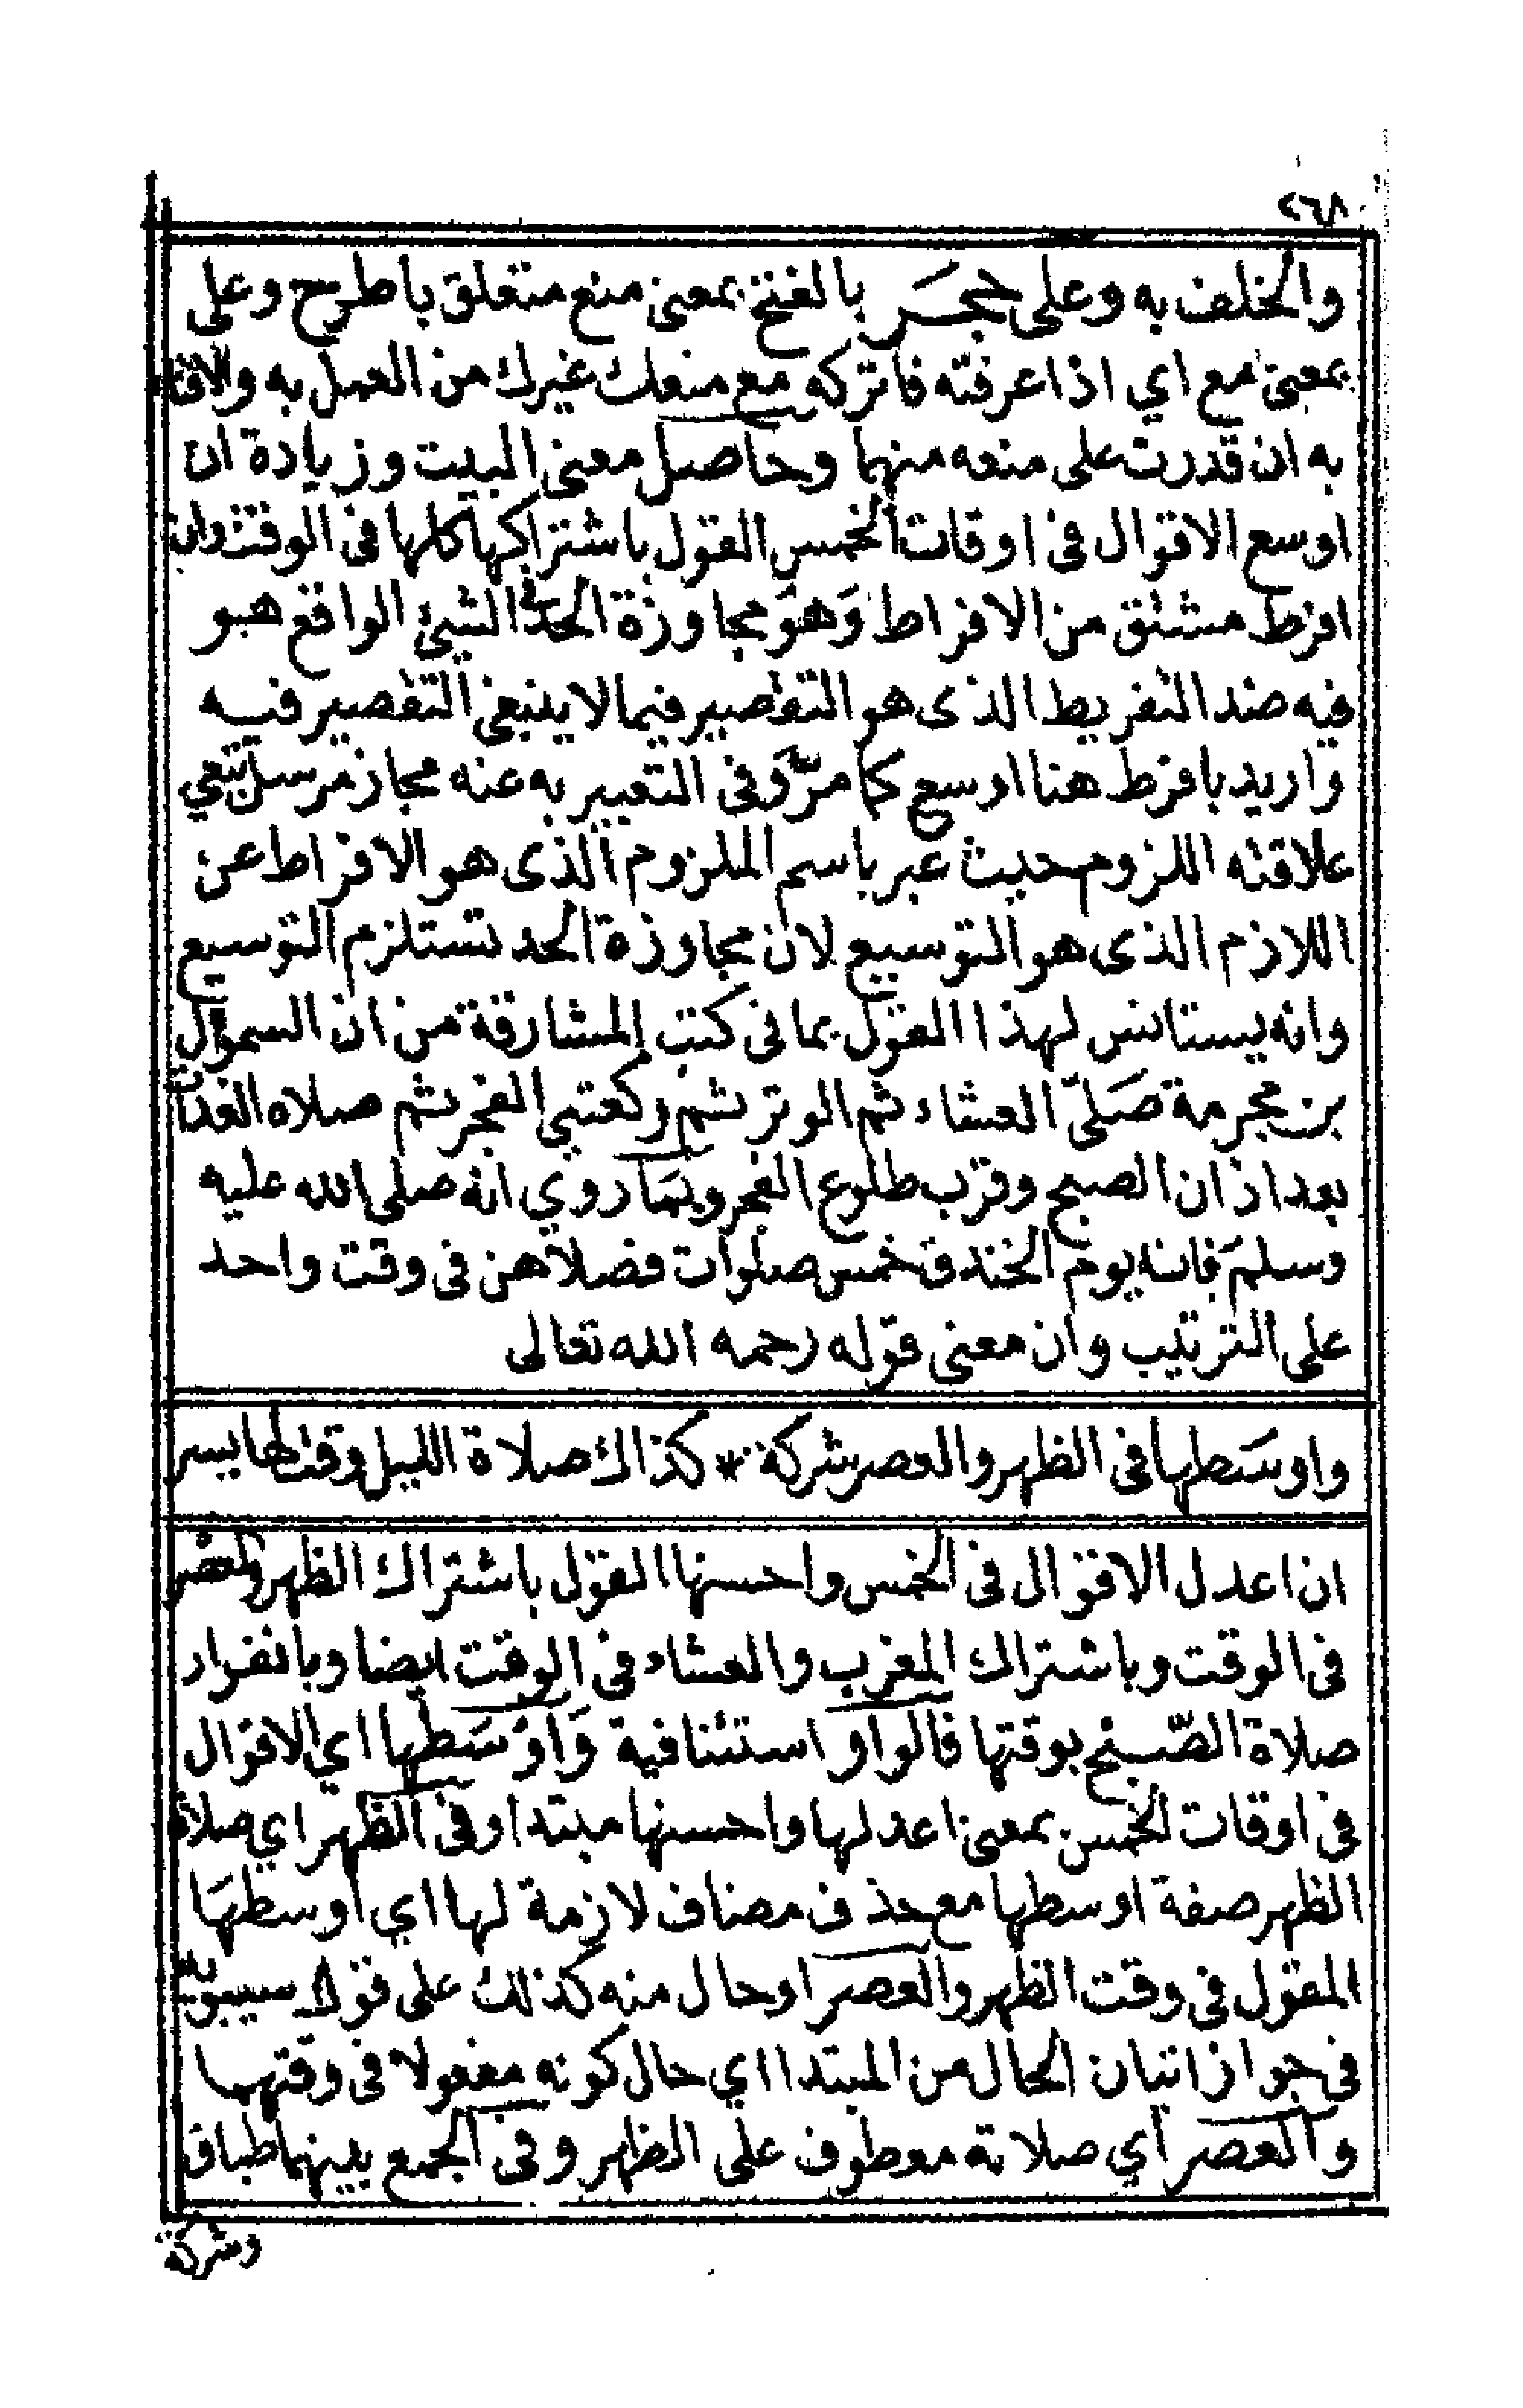 ٢٦٨
والخلف به وعلى حجَر بالفتح بمعنى منع متعلق باطرح وعلى
بمعنى مع اي اذا عرفته فاتركه مع منعك غيرك من العمل به والافتا
به ان قدرت على منعه منهما وحاصل معنى البيت وزيادة ان
اوسع الاقوال فى اوقات الخمس القول باشتراكها كلها فى الوقت وان
افرط مشتق من الافراط وَهوَ مجاوزة الحد فى الشيئ الواقع هو
فيه ضد التفريط الذى هو التقصير فيما لا ينبغى التقصير فيه
واريد بافرط هنا اوسع كما مرّ وَفى التعبير به عنه مجاز مرسل تبعي
علاقته اللزوم حيث عبر باسم الملزوم الذى هو الافراط عن
اللازم الذى هو التوسيع لان مجاوزة الحد تستلزم التوسيع
وانه يستانس لهذا القول بما فى كتب المشارقة من ان السموال
بن محرمة صَلىّ العشاء ثم الوتر ثم ركعتي الفجر ثم صلاه الغداة
بعد اذان الصبح وقرب طلوع الفجر وبمَا روي انه صلى الله عليه
وسلمَ فاته يوم الخندق خمس صلوات فصلاهن فى وقت واحد
على الترتيب وان معنى قوله رحمه الله تعالى
واوسَطها فى الظهر والعصر شركة * كذاك صلاة الليل وقتلها يسر
ان اعدل الاقوال فى الخمس واحسنها القول باشتراك الظهر والعصر
فى الوقت وباشتراك المغرب والعشاء فى الوقت ايضا وبانفراد
صلاة الصّبح بوقتها فالواو استئنافية وَاوْسَطها اي الاقوال
فى اوقات الخمس بمعنى اعدلها واحسنها مبتدا وفى الظهر اي صلاة
الظهر صفة اوسطها مع حذف مضاف لازمة لها اي اوسطهَا
المقول فى وقت الظهر والعصر او حال منه كذلك على قول سيبويه
فى جواز اتيان الحال من المبتدا اي حال كونه مفعولا فى وقتهما
والعصر اي صلاته معطوف على الظهر وفى الجمع بينهما طباق
وشركة